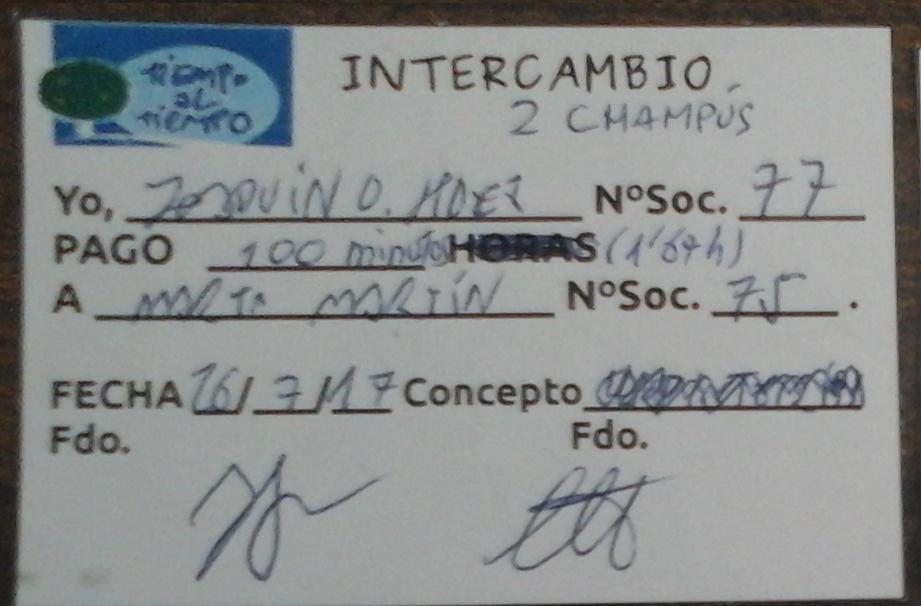 tiempo
al
tiempo
INTERCAMBIO
2 CHAMPÚS
Yo, JOAQUÍN O. HDEZ NºSoc. 77
PAGO 100 minutos HORAS (1'67h)
A MARTA MARTÍN NºSoc. 75.
FECHA 16/7/17 Concepto
Fdo. Fdo.